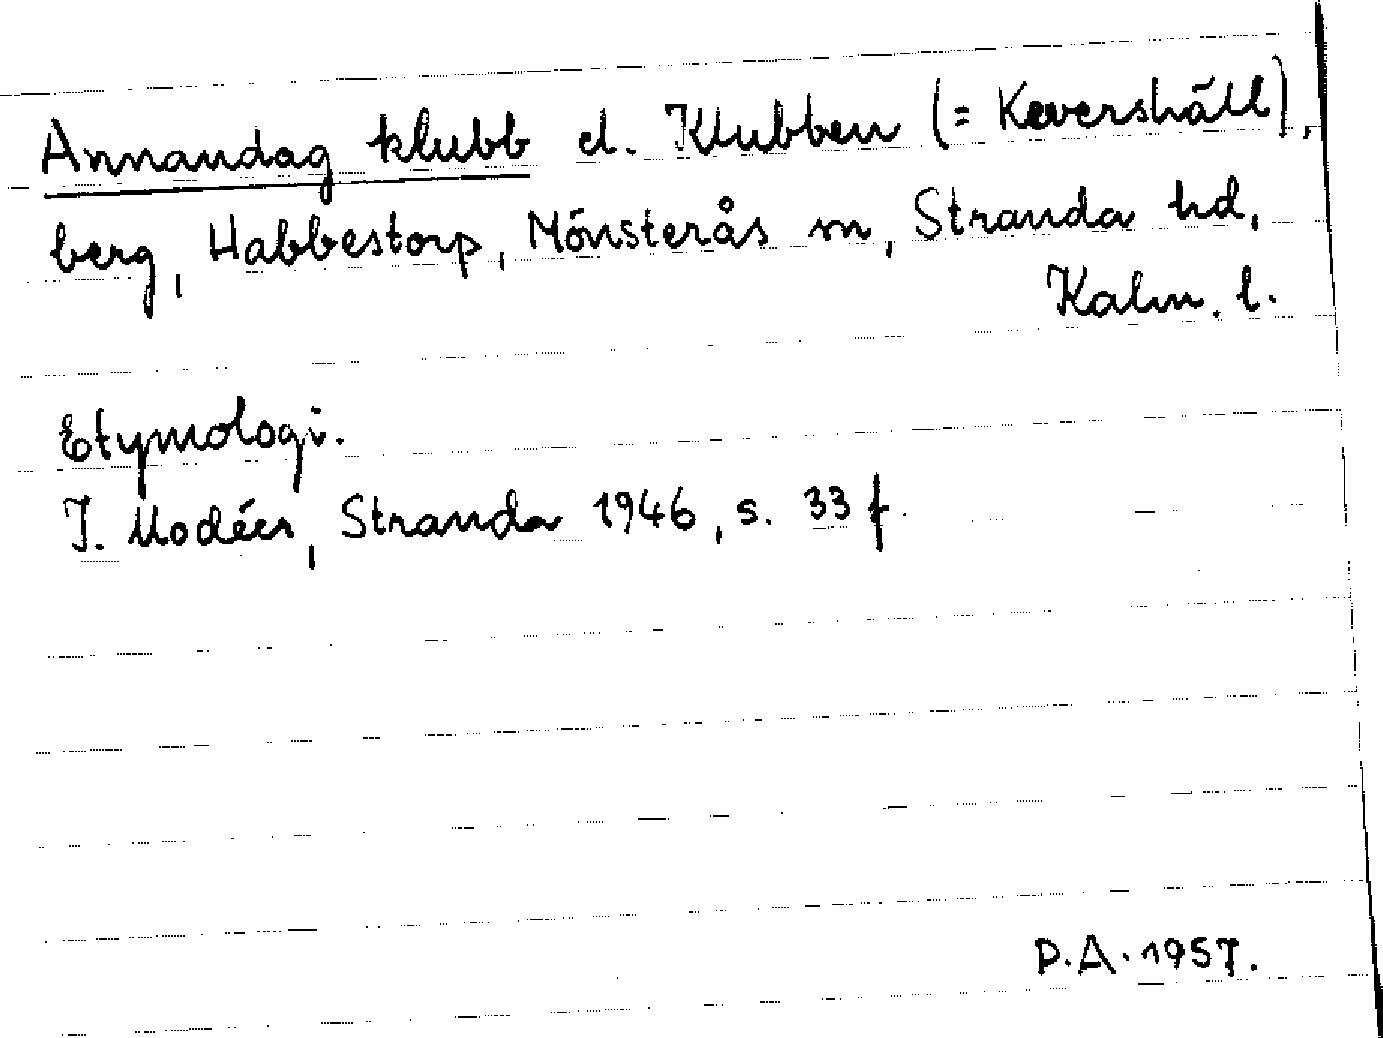 Annandag klubb el. Klubben (= Kevershäll),
berg, Habbestorp, Mönsterås sn, Stranda hd,
Kalm. l.
Etymologi.
I. Modéer, Stranda 1946, s. 33 f.
D.A. 1957.